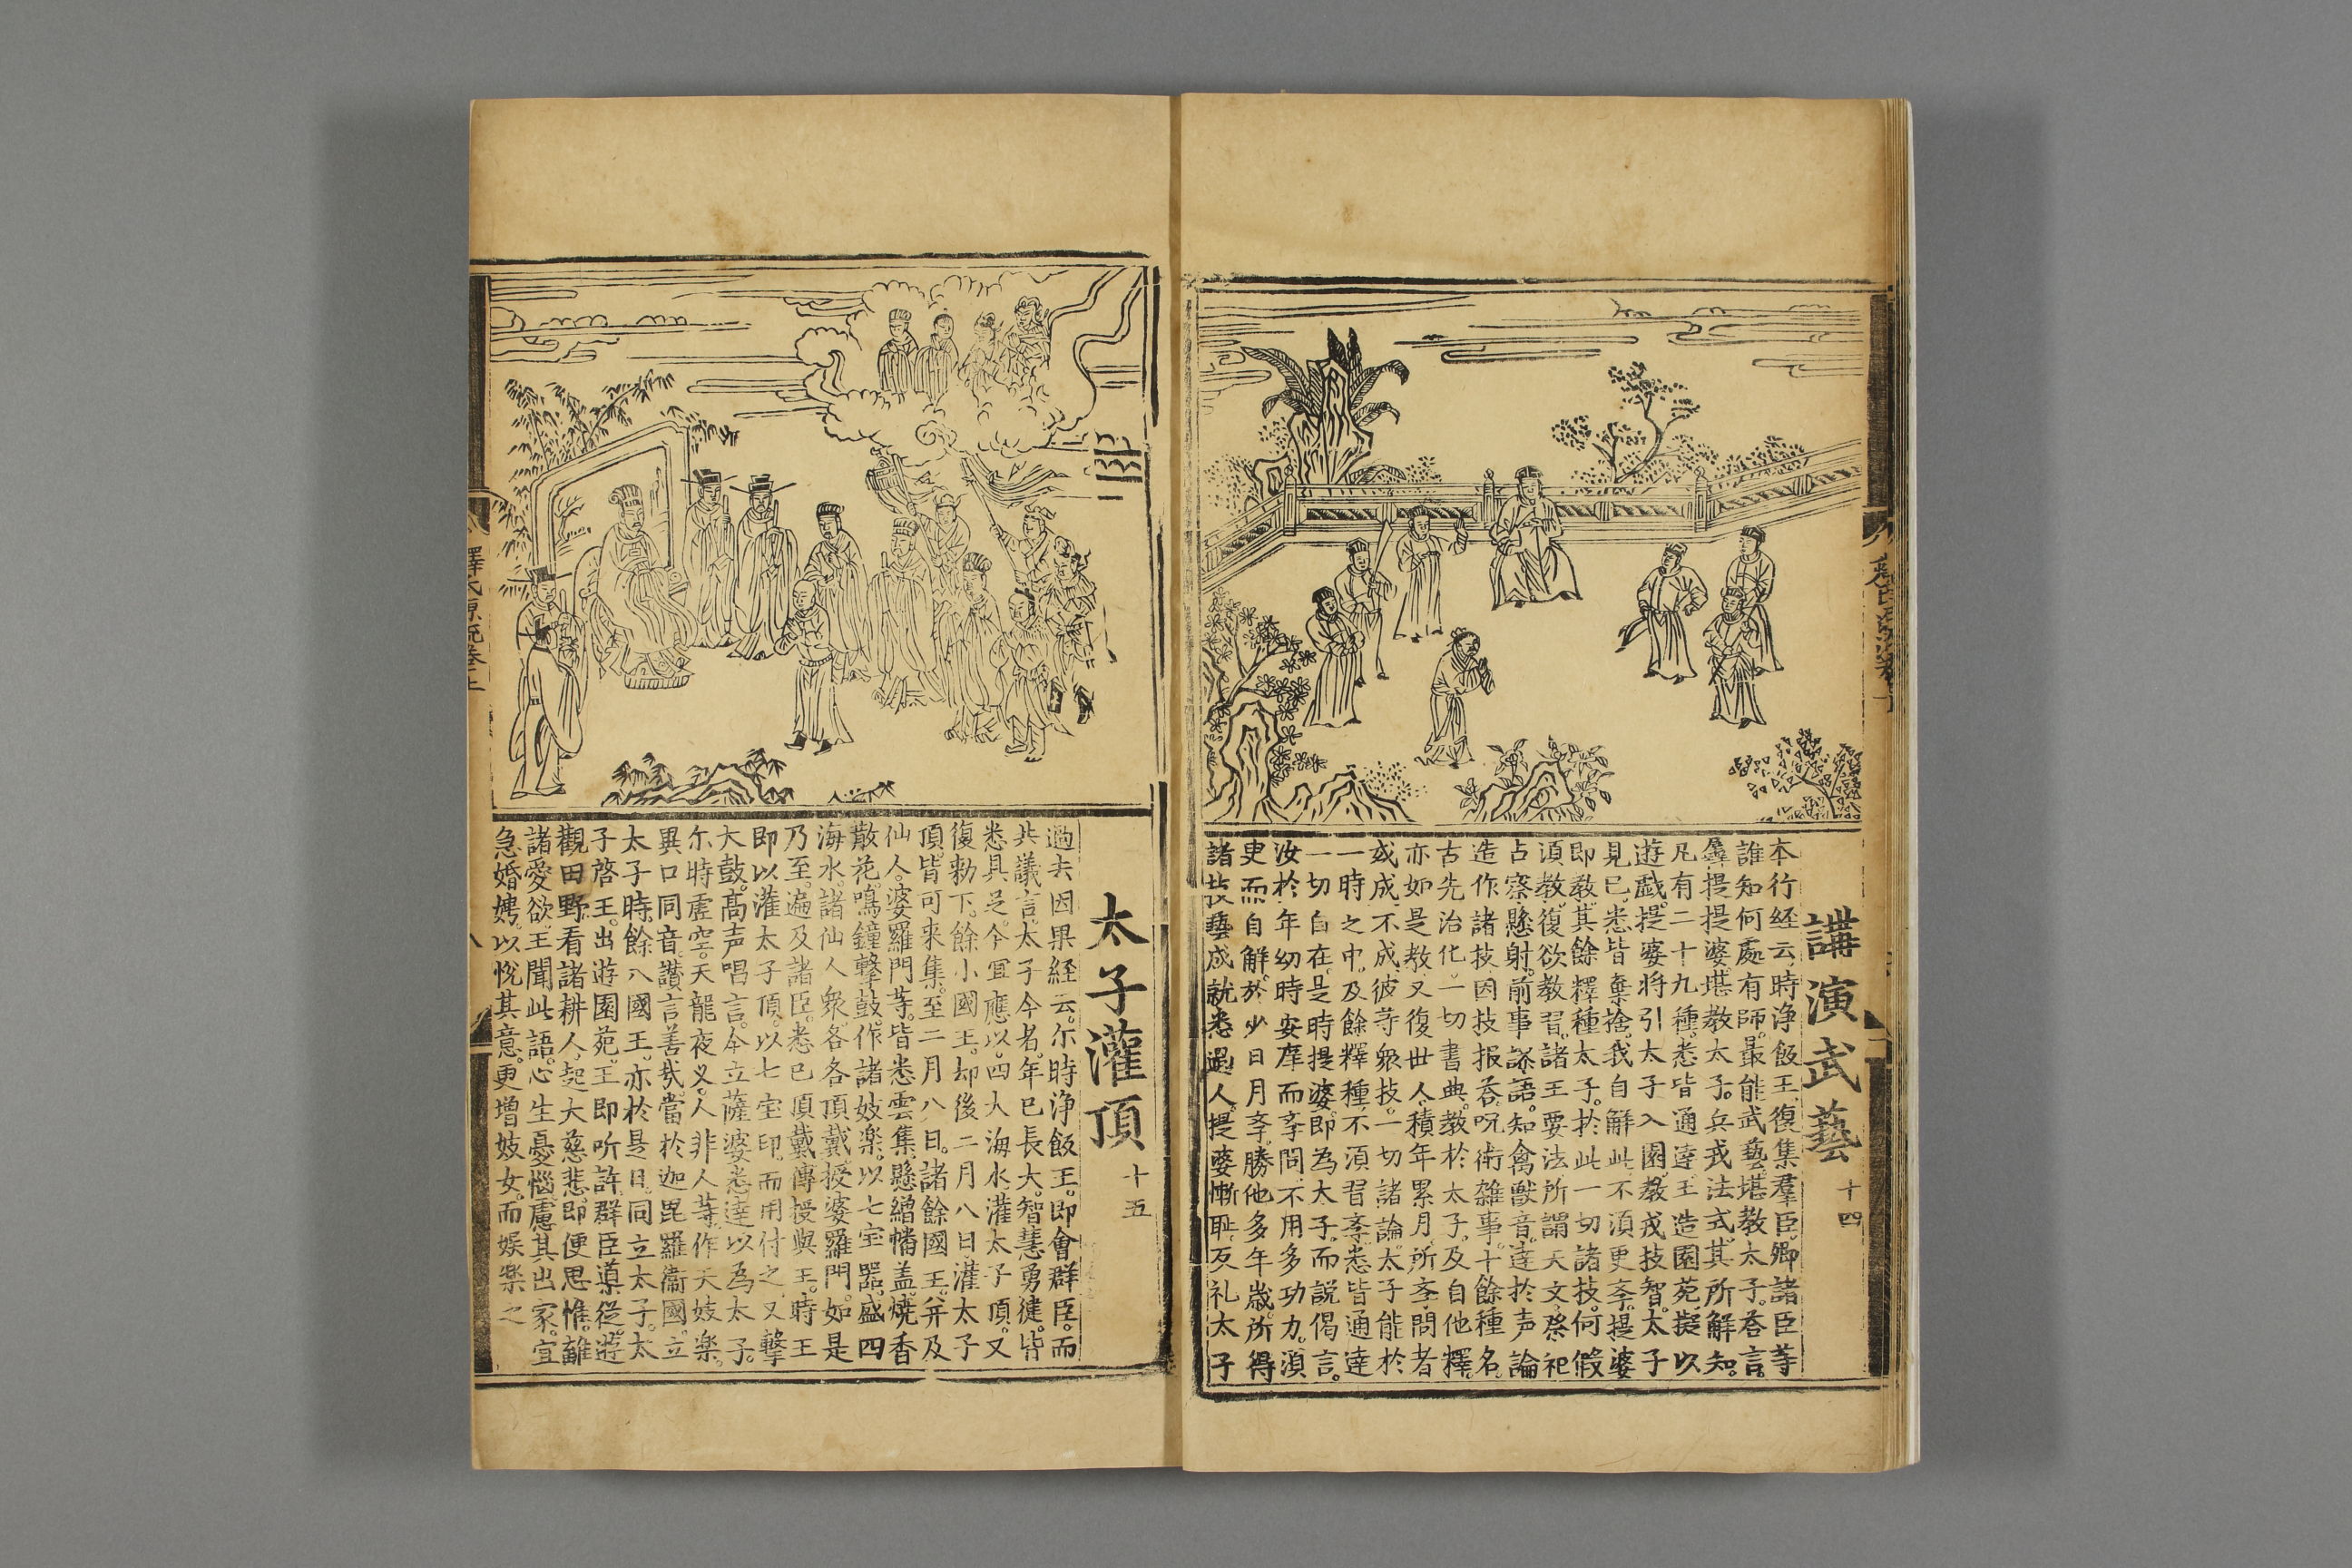 講演武藝 十四
本行経云時浄飯王復集羣臣卿諸臣等
誰知何處有師最能武藝堪教太子荅言
羼提提婆堪教太子兵戎法式其所解知
凡有二十九種悉皆通達王造園苑擬以
遊戱提婆將引太子入園教戎技智太子
見已悉皆棄捨我自解此不湏更斈提婆
即教其餘釋種太子扵此一切諸技何假
湏教復欲教習諸王要法所謂天文祭祀
占察懸射前事談語知禽獸音達於声論
造作諸技因技报荅呪術雜事十餘種名
古先治化一切書典教於太子及自他釋
亦如是教又復世人積年累月所斈問者
或成不成彼等衆技一切諸論太子能於
一時之中及餘釋種不湏習斈悉皆通達
一切自在是時提婆即為太子而説偈言
汝於年幼時安庠而斈問不用多功力湏
更而自解於少日月斈勝他多年歲所得
諸技藝成就悉過人提婆慚耻反礼太子
太子灌頂 十五
過去因果経云尔時浄飯王即會群臣而
共議言太子今者年已長大智慧勇健皆
悉具足今宜應以四大海水灌太子頂又
復勑下餘小國王却後二月八日灌太子
頂皆可来集至二月八日諸餘國王并及
仙人婆羅門等皆悉雲集懸繒幡盖燒香
散花鳴鐘擊鼓作諸妓楽以七宝器盛四
海水諸仙人衆各各頂戴授婆羅門如是
乃至遍及諸臣悉已頂戴傳授與王時王
即以灌太子頂以七宝印而用付之又擊
大鼓高声唱言今立薩婆悉達以爲太子
尔時虚空天龍夜叉人非人等作天妓楽
異口同音讃言善哉當於迦毘羅衞國立
太子時餘八國王亦於是日同立太子太
子啓王出遊園苑王即听許群臣導從遊
觀田野看諸耕人起大慈悲即便思惟離
諸愛欲王聞此語心生憂惱慮其出家宜
急婚娉以悅其意更增妓女而娯楽之
釋氏源流卷上